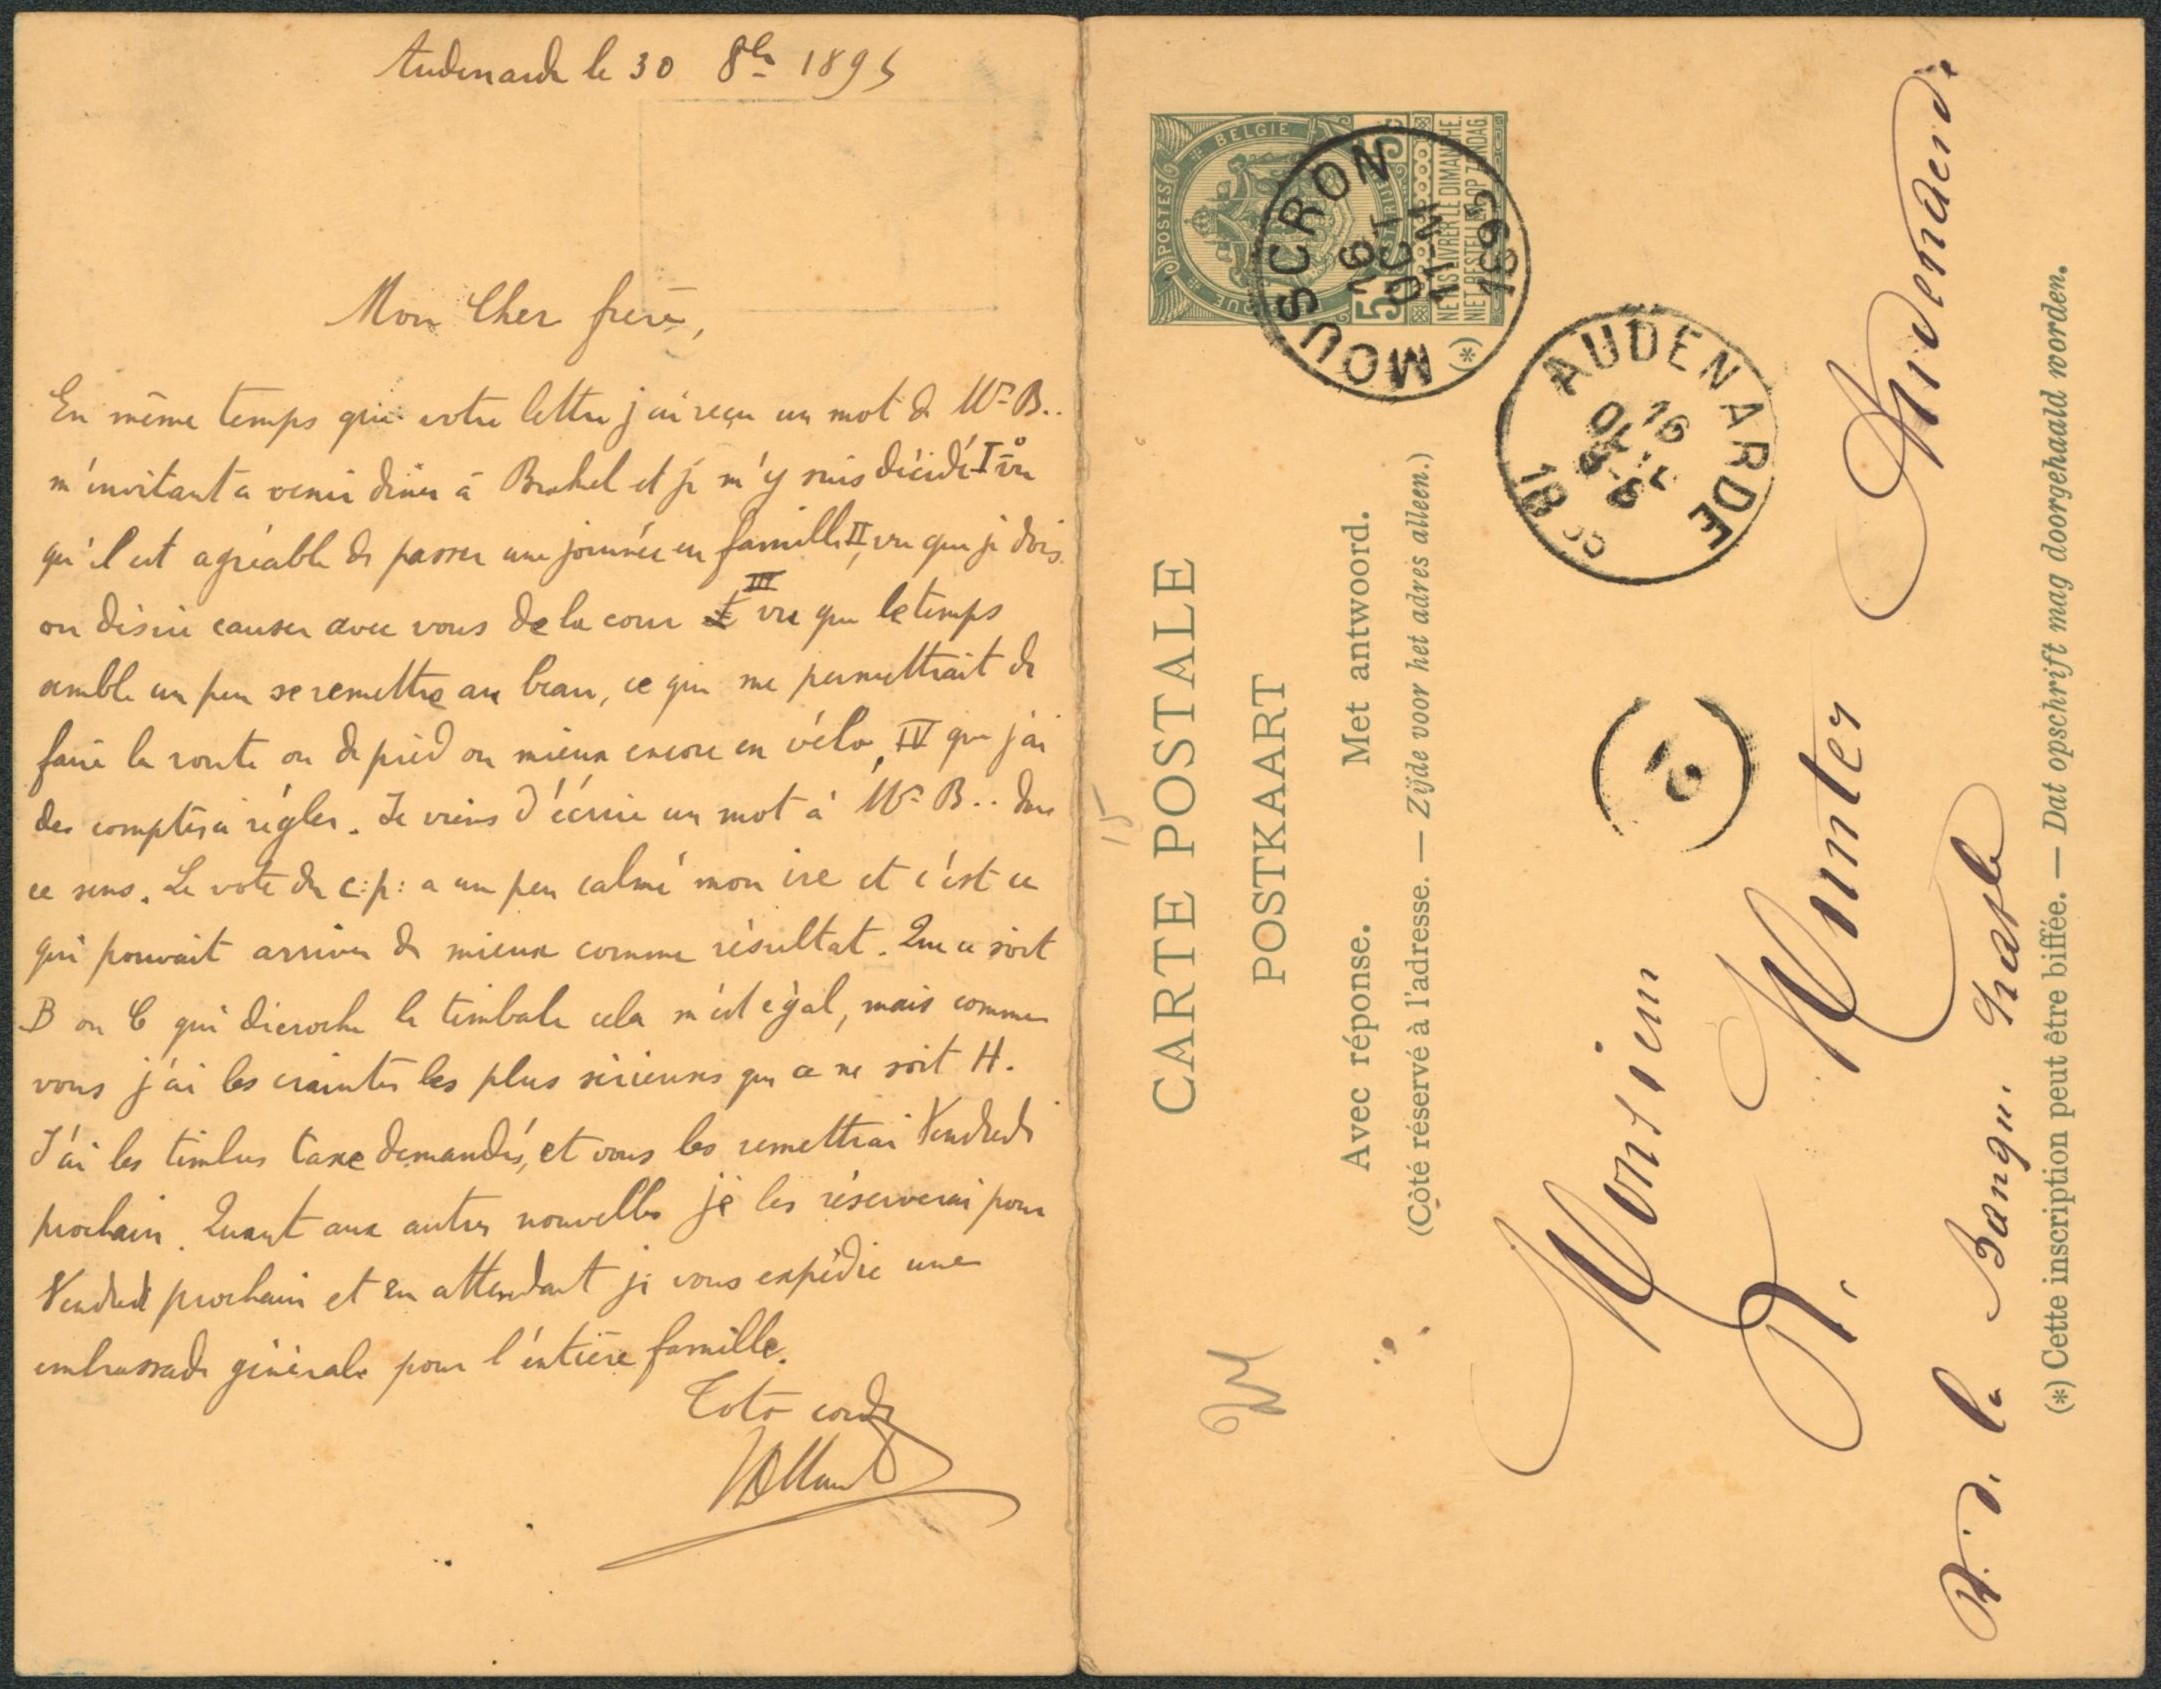 Audenarde le 30 8bre 1895
Mon Cher frère,
En même temps que votre lettre j'ai reçu un mot de Mr B..
m'invitant à venir diner à Brakel et je m'y suis décidé I° vu
qu'il est agréable de passer une journée en famille, II vu que je dois
ou désire causer avec vous de la cour III vu que le temps
semble un peu se remettre au beau, ce qui me permettrait de
faire la route ou de pied ou mieux encore en vélo, IV que j'ai
des comptes à régler. Je viens d'écrire un mot à Mr B.. dans
ce sens. Le vote du c:p: a un peu calmé mon ire et c'est ce
qui pouvait arriver de mieux comme résultat. Que ce soit
B ou C qui décroche la timbale cela m'est égal, mais comme
vous j'ai les craintes les plus sérieuses que ce ne soit H.
J'ai les timbres taxe demandés, et vous les remettrai Vendredi
prochain. Quant aux autres nouvelles je les réserverai pour
Vendredi prochain et en attendant je vous expédie une
embrassade générale pour l'entière famille.
Toto corde
15
W
CARTE POSTALE
POSTKAART
Avec réponse. Met antwoord.
(Côté réservé à l'adresse. — Zijde voor het adres alleen.)
POSTES
BELGIE
5 5
NE PAS LIVRER LE DIMANCHE.
NIET BESTELLEN OP ZONDAG.
(*)
MOUSCRON
16
OCT
11-M
1895
AUDENARDE
16
OCT
18
Monsieur
Munter
R. d. la Banque Audenarde
(*) Cette inscription peut être biffée. — Dat opschrift mag doorgehaald worden.